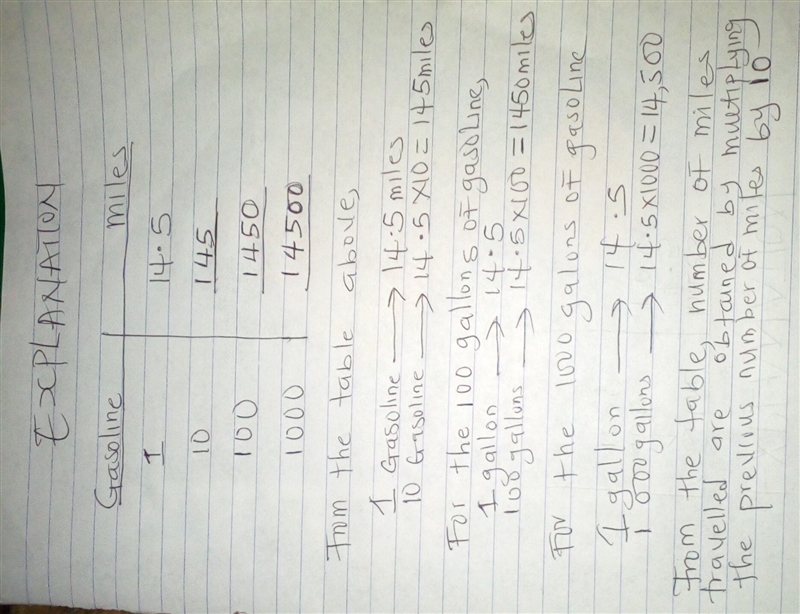 EXPLANATION
Gasoline miles
1 14.5
10 145
100 1450
1000 14500
From the table above,
1 Gasoline → 14.5 miles
10 Gasoline → 14.5 × 10 = 145 miles
For the 100 gallons of gasoline,
1 gallon → 14.5
100 gallons → 14.5 × 100 = 1450 miles
For the 1000 galons of gasoline
1 gallon → 14.5
1000 gallons → 14.5 × 1000 = 14,500
From the table, number of miles
travelled are obtained by multiplying
the previous number of miles by 10